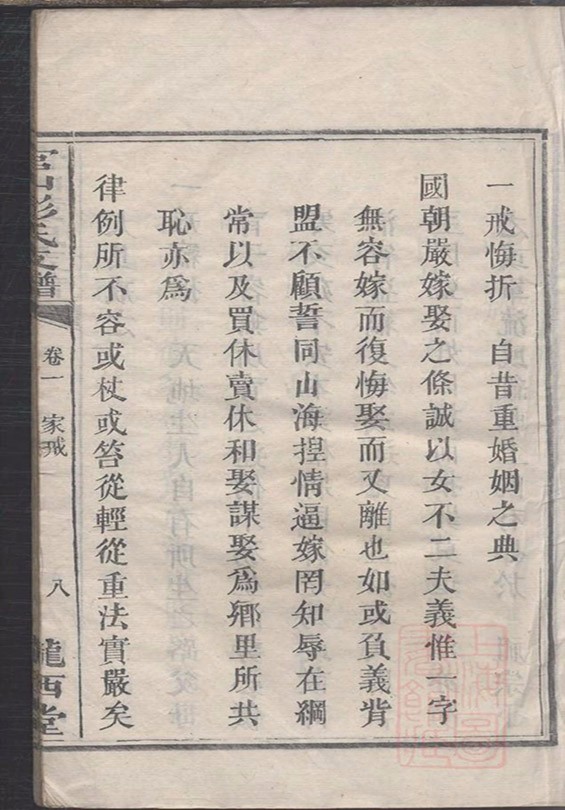 一戒悔折　自昔重婚姻之典
國朝嚴嫁娶之條誠以女不二夫義惟一字
無容嫁而復悔娶而又離也如或負義背
盟不顧誓同山海揑情逼嫁罔知辱在綱
常以及買休賣休和娶謀娶爲鄉里所共
恥亦爲
律例所不容或杖或笞從輕從重法實嚴矣
彭氏支譜
卷一　家戒
八
隴西堂